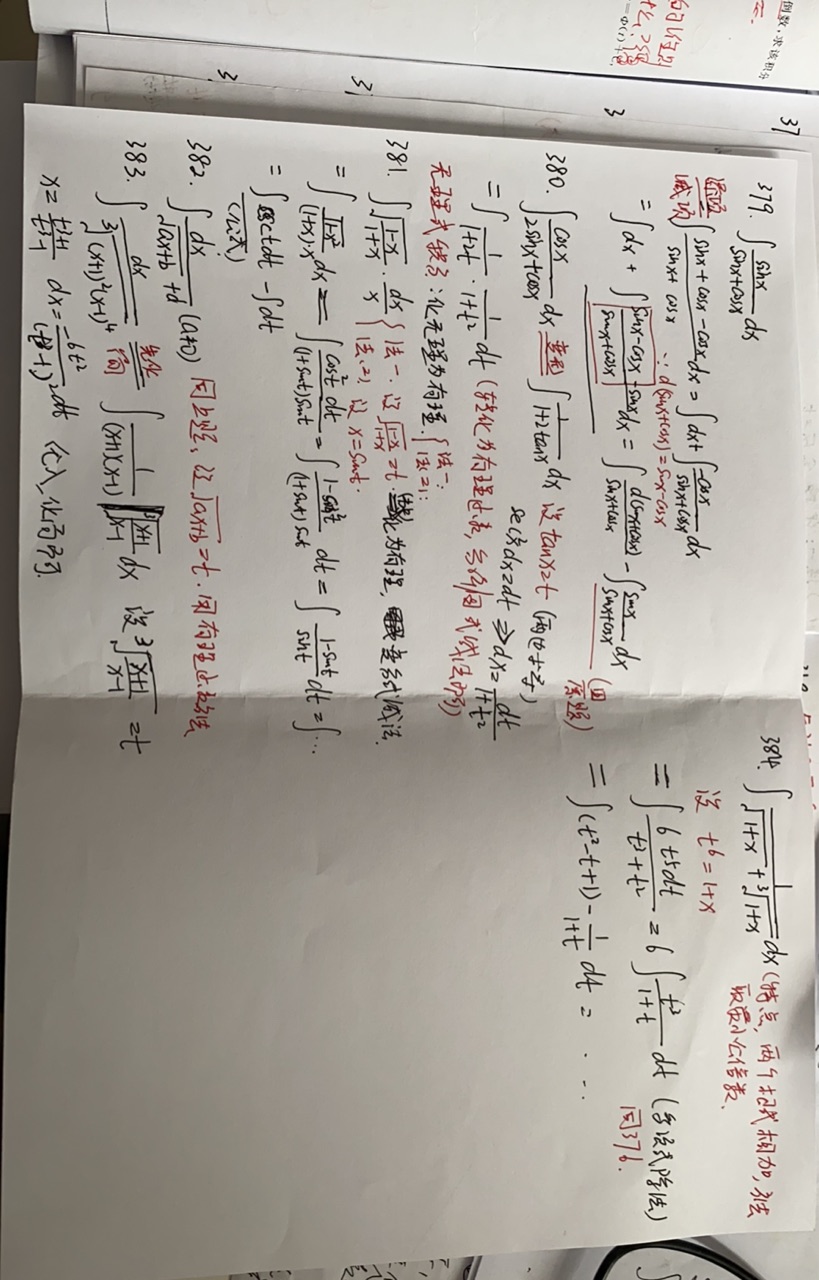 379. ∫ sinx/(sinx+cosx) dx
添项 减项 ∫ (sinx+cosx-cosx)/(sinx+cosx) dx = ∫dx + ∫ -cosx/(sinx+cosx) dx
∵ d(sinx+cosx) = sinx-cosx
= ∫dx + ∫ (sinx-cosx-sinx)/(sinx+cosx) dx = ∫ d(sinx+cosx)/(sinx+cosx) - ∫ sinx/(sinx+cosx) dx (回原题)
380. ∫ cosx/(2sinx+cosx) dx 变形 ∫ 1/(1+2tanx) dx 设 tanx=t (两边求导)
sec²xdx=dt ⇒ dx = dt/(1+t²)
= ∫ 1/(1+2t) · 1/(1+t²) dt (转化为有理式
无理式转了:化无理为有理. {法一: 法二:
381. ∫ √((1-x)/(1+x)) · dx/x {法一. 设 √((1-x)/(1+x)) = t 化为有理,
法(2), 设 x=sint.
= ∫ √(1-x²)/((1+x)·x) dx = ∫ cos²t dt/((1+sint)sint) = ∫ (1-sin²t)/((1+sint)sint) dt = ∫ (1-sint)/sint dt = ∫ ...
= ∫ csctdt - ∫dt
(公式)
382. ∫ dx/(√(ax+b) +d) (a≠0) 同上题, 设 √(ax+b) = t.
383. ∫ dx/³√((x+1)²(x-1)⁴) 先化简 ∫ 1/((x+1)(x-1)) ³√((x+1)/(x-1)) dx 设 ³√((x+1)/(x-1)) = t
x = (t³+1)/(t³-1) dx = -6t²/(t³-1)² dt 代入化简即可.
384. ∫ 1/(√(1+x) + ³√(1+x)) dx (特点, 两个根式相加, 方法
取最小公倍数.
设 t⁶=1+x
= ∫ 6t⁵dt/(t³+t²) = 6 ∫ t³/(1+t) dt (多项式除法)
同376.
= ∫ (t²-t+1) - 1/(1+t) dt = ....